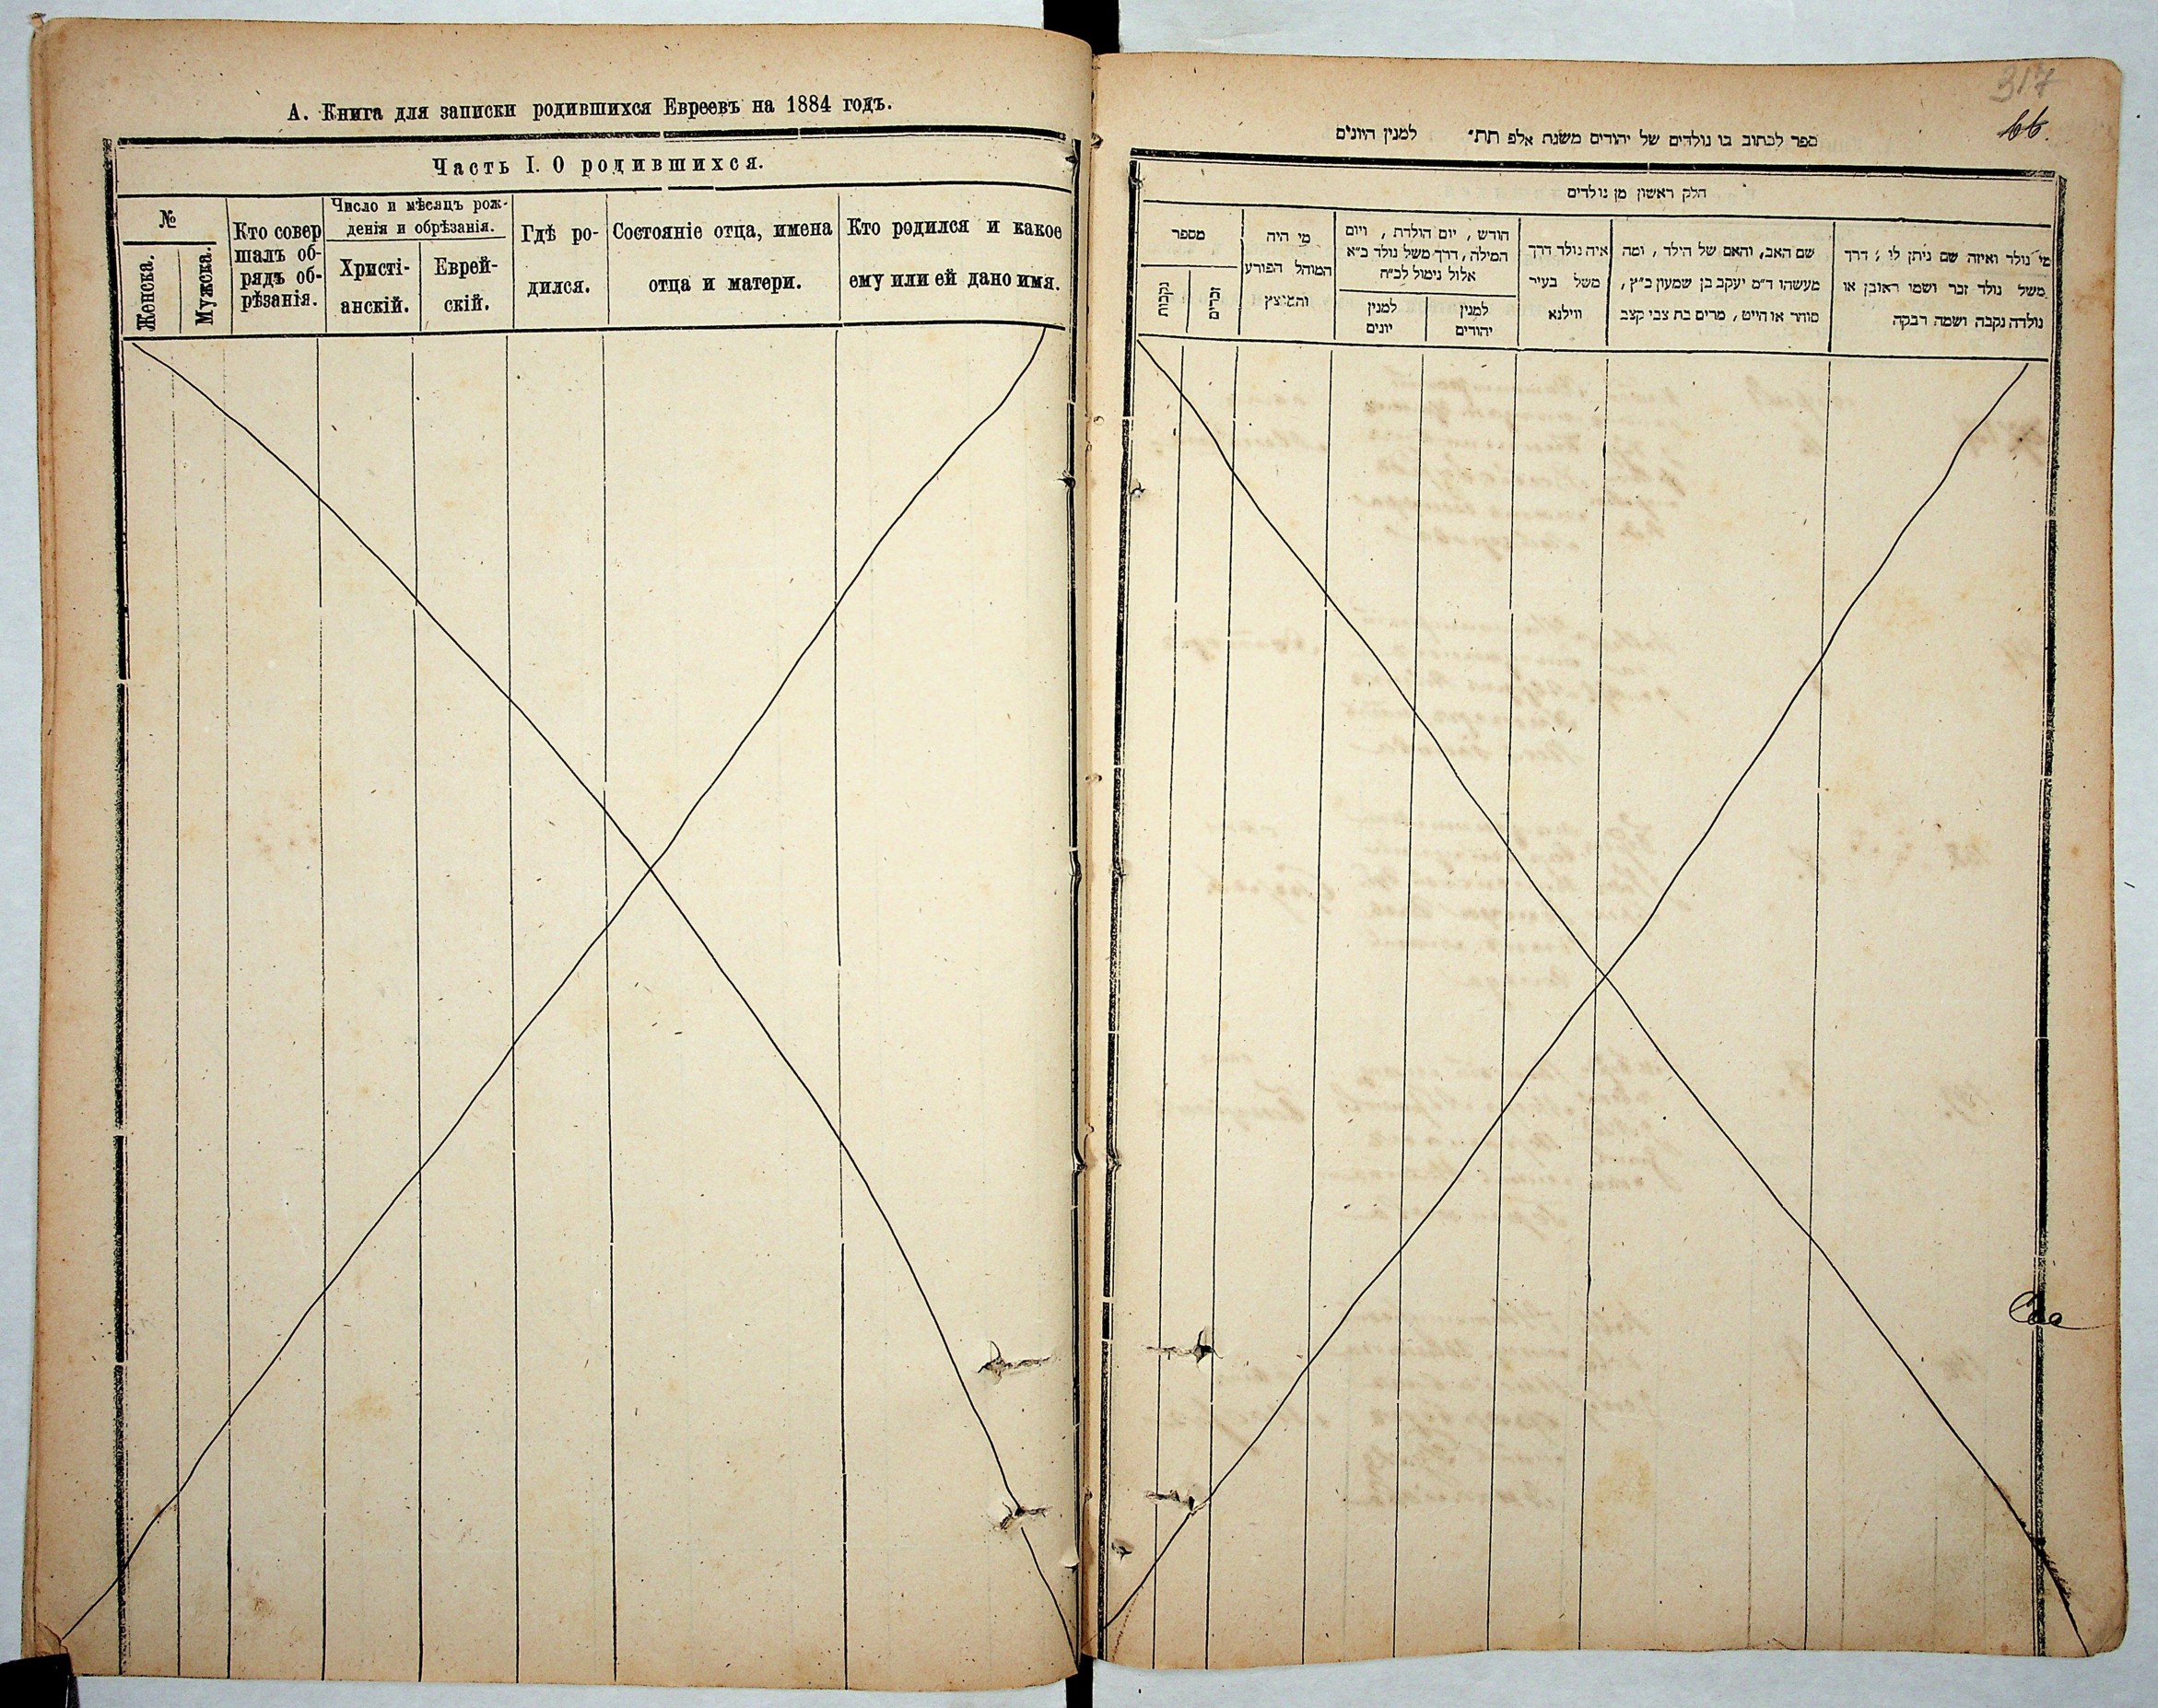 А. Книга для записки родившихся Евреевъ на 1884 годъ.
Часть I. О родившихся.
№
Женска.
Мужска.
Кто совер
шалъ об-
рядъ об-
рѣзанія.
Число и мѣсяцъ рож-
денія и обрѣзанія.
Христі-
анскій.
Еврей-
скій.
Гдѣ ро-
дился.
Состояніе отца, имена
отца и матери.
Кто родился и какое
ему или ей дано имя.
317
66.
ספר לכתוב בו נולדים של יהודים משנת אלפ תת״ למנין היונים
חלק ראשון מן נולדים
מי נולד ואיזה שם ניתן לו ; דרך
משל נולד זכר ושמו ראובן או
נולדה נקבה ושמה רבקה
שם האב, והאם של הילד , ומה
מעשהו ד״מ יעקב בן שמעון כ״ץ,
סוחר או חייט, מרים בת צבי קצב
איה נולד דרך
משל בעיר
ווילנא
חודש , יום הולדת , ויום
המילה, דרך משל נולד כ״א
אלול נימול לכ״ח
למנין
יהודים
למנין
יונים
מי היה
המוהל הפורע
והמוצץ
מספר
זכרים
נקבות